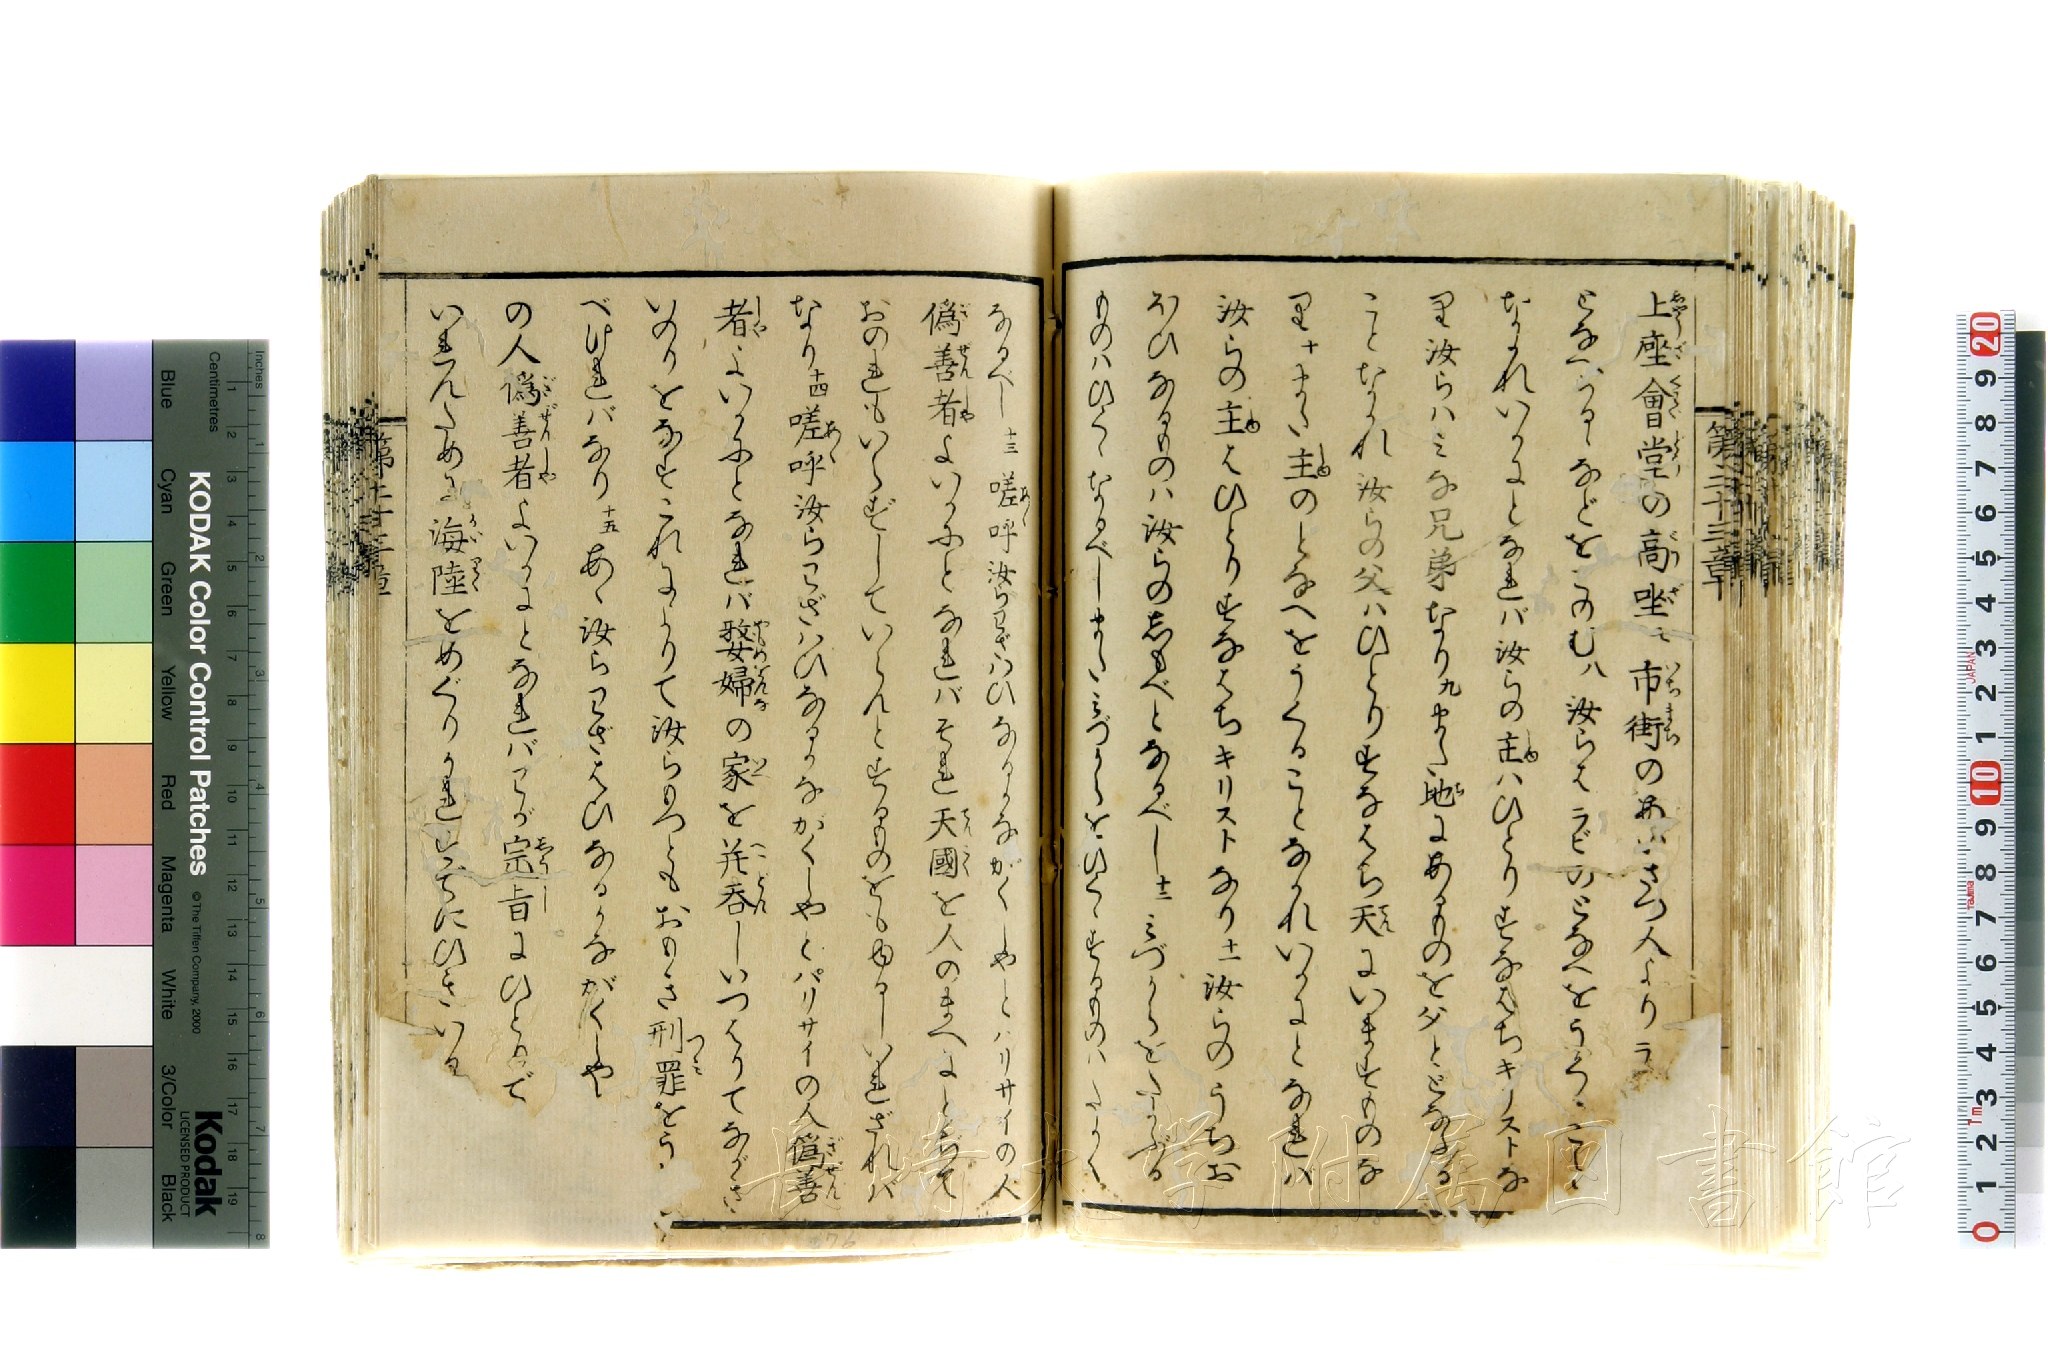 上座會堂の高坐に市街のあいさつ人よりラ
となへらるゝなどをこのむ八汝らはラビのとなへをうくる
なかれいかにとなれバ汝らの主ハひとりすなはちキリストな
り汝らハミな兄弟なり九また地にあるものを父ととなふる
ことなかれ汝らの父ハひとりすなはち天にいますものな
り十また主のとなへをうくることなかれいかにとなれバ
汝らの主はひとりすなはちキリストなり十一汝らのうちお
ほひなるものハ汝らの志もべとなるべし十二ミづからをたかぶる
ものハひくゝなるべしまたミづからをひくゝするものハたかく
なるべし十三嗟呼汝らわざハひなるかながくしやとパリサイの人
偽善者よいかにとなれバそれ天國を人のまへにとぢて
おのれもいらずしていらんとするものをもゆるしいれざれバ
なり十四嗟呼汝らわざハひなるかながくしやとパリサイの人偽善
者よいかにとなれバ嫠婦の家を并呑しいつはりてながき
いのりをなすこれによりて汝らもつともおもき刑罪をう
べけれバなり十五あゝ汝らわざはひなるかながくしや
の人偽善者よいかにとなれバわが宗旨にひとりで
いれんために海陸をめぐりかれすでにひきいる
第二十三章
第二十三章
長崎大学附属図書館
KODAK Color Control Patches
© The Tiffen Company, 2000
Kodak
LICENSED PRODUCT
Inches
Centimetres
Blue
Cyan
Green
Yellow
Red
Magenta
White
3/Color
Black
JAPAN
Tajima